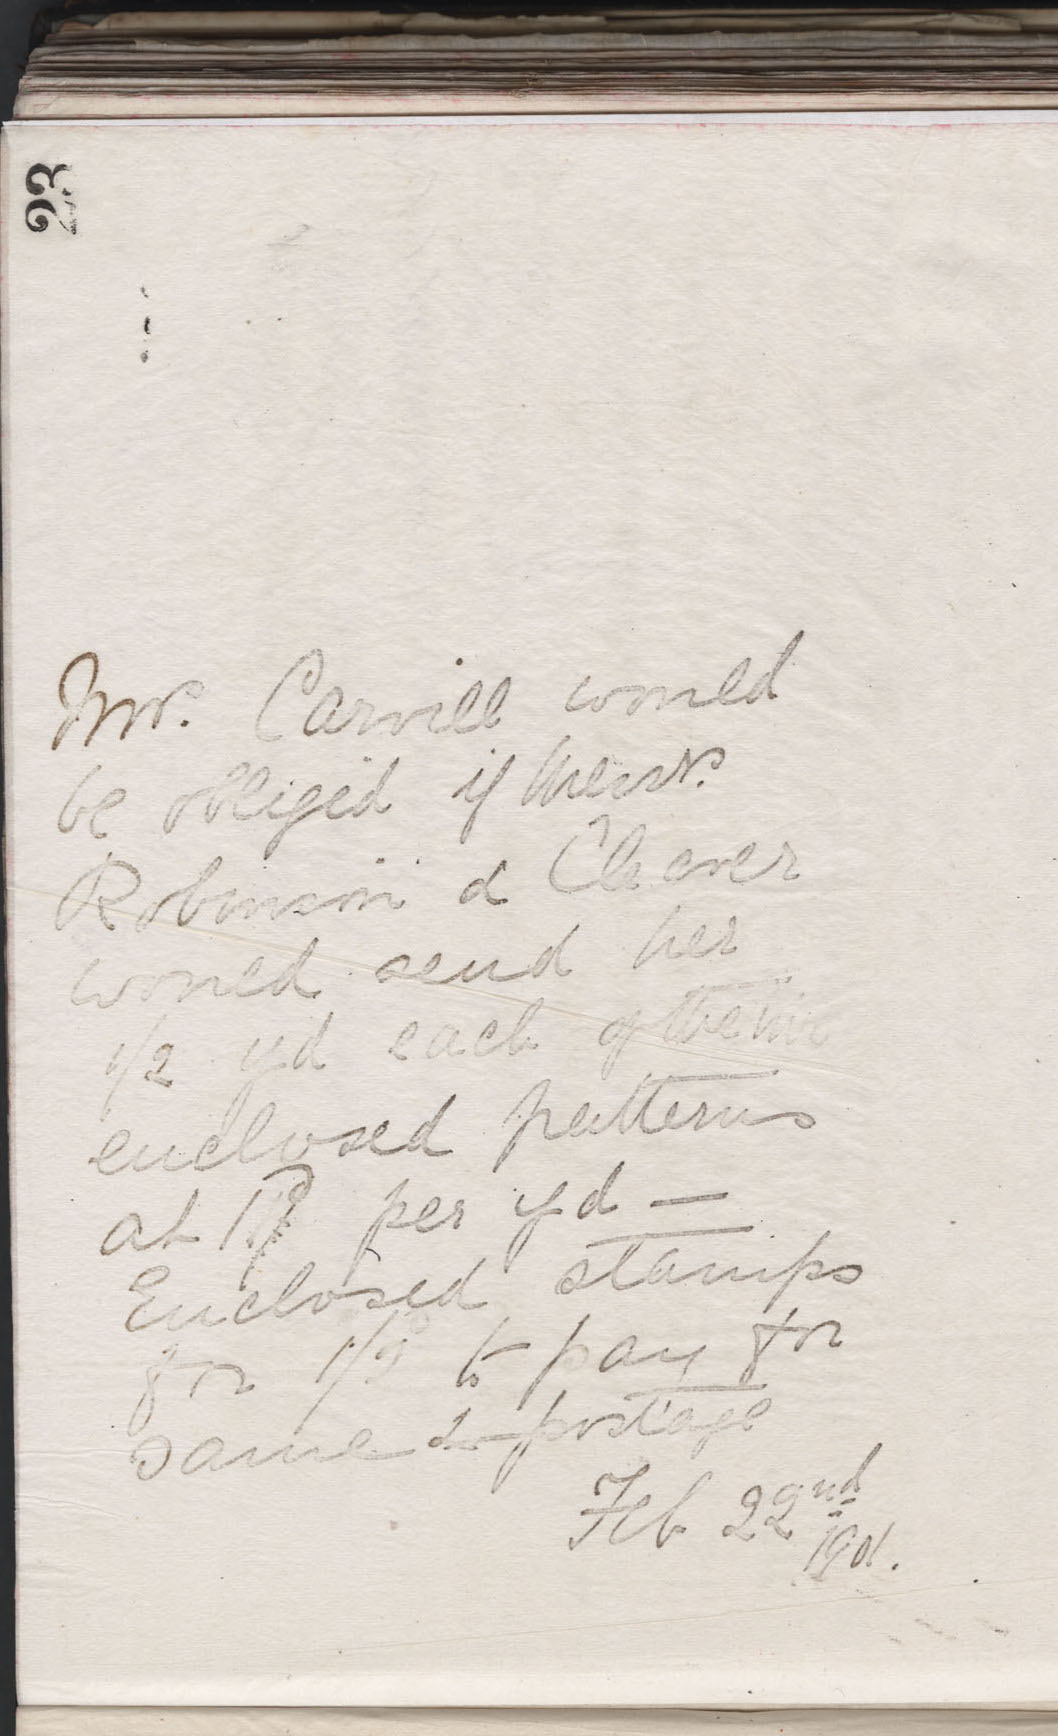 23
Mrs. Carvill would
be obliged if Messrs.
Robinson & Cleaver
would send her
1/2 yd each of the two
enclosed patterns
at per yd —
Enclosed stamps
for to pay for
same & postage
Feb 22nd
1901.